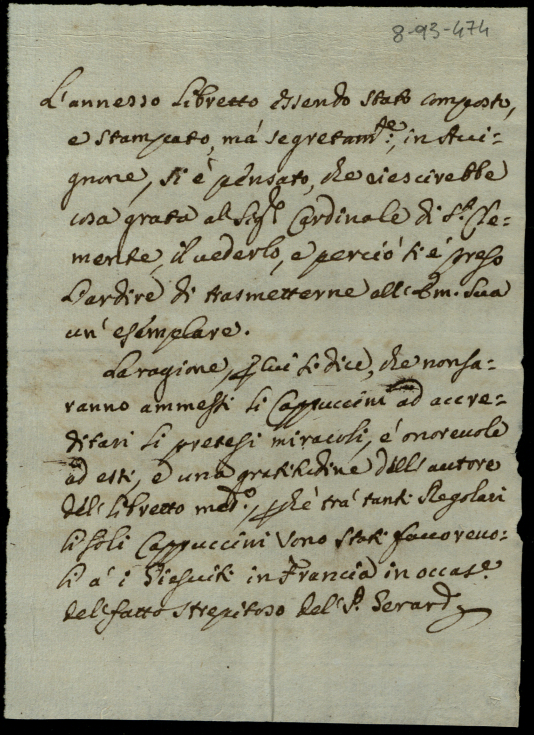 8-93-474
L'annesso libretto essendo stato composto,
e stampato, mà segretam.te, in Avi-
gnone, si è pensato, che riescirebbe
cosa grata al Sig.r Cardinale di S. Cle-
mente, il vederlo, e perciò si è preso
l'ardire di trasmetterne all'Em. Sua
un' esemplare.
La ragione, p cui si dice, che non sa-
ranno ammessi li Cappuccini ad accre-
ditari li pretesi miracoli, è onorevole
ad essi, è una gratitudine dell'autore
del libretto med.o, pchè trà tanti Regolari
li soli Cappuccini sono stati favorevo-
li a' i Giesuiti in Francia in occas.e
del fatto strepitoso del P. Gerard